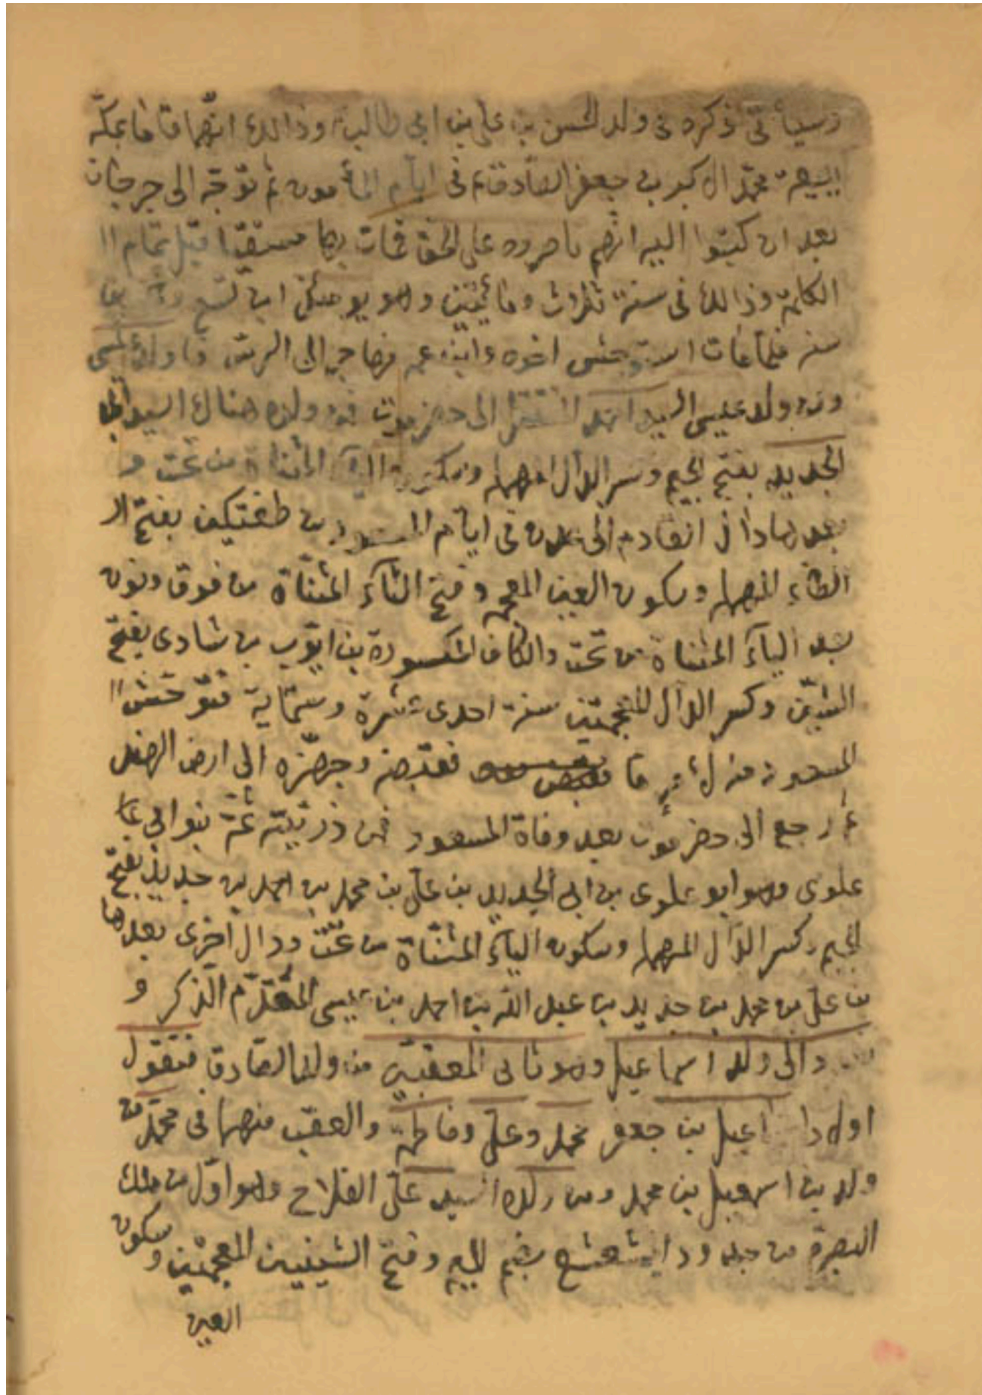 وسيأتي ذكره في ولد الحسن بن علي بن ابي طالب وذالك انهما قاما بمكة
لبيعة محمد الاكبر بن جعفر الصادق في ايام المأمون ثم توجه الى جرجان
بعد ان كتبوا اليه انهم ناصروه على الحق فمات بها مستقيا قبل تمام ا
الكلمة وذالك في سنة ثلاث ومائتين وهو يومئذ ابن تسع
سنه فلما مات استوحش اخوه وابن عمه فهاجر الى الرس
ومن ولد عيسى السيد احمد المنتقل الى حضرموت فمن ولده هنالك السيد ابي
الجديد بفتح الجيم وكسر الدال المهمله وسكون اليآء المثناة من تحت و
بعدها دال القادم الى عدن في ايام المسعود بن طغتكين بفتح ا
الطآء المهمله وسكون الغين المعجمه وفتح التآء المثناة من فوق ونون
بعد اليآء المثناة من تحت والكاف المكسورة بن ايوب بن شادى بفتح
الشين وكسر الدال المعجمتين سنة احدى عشرة وستماية فتوحش ا
المسعود منه لأمر ما فقبضه وجهزه الى ارض الهند
ثم رجع الى حضرموت بعد وفاة المسعود فمن ذريته ثمة بنو ابي
علوى وهو ابو علوى بن ابي الجديد بن علي بن محمد بن احمد بن جديد بفتح
الجيم وكسر الدال المهمله وسكون اليآء المثناة من تحت ودال اخرى بعدها
بن علي بن محمد بن جديد بن عبد الله بن احمد بن عيسى المتقدم الذكر و
والى ولد اسماعيل وهو ثاني المعقبين من ولد الصادق فنقول
اولاد اسماعيل بن جعفر محمد وعلي وفاطمة والعقب منهما في محمد فمن
ولد بن اسمعيل بن محمد ومن ولده السيد علي الفلاح وهو اول من ملك
البصرة من جده ودا المشعشع بضم الميم وفتح الشينين المعجمتين وسكون
العين